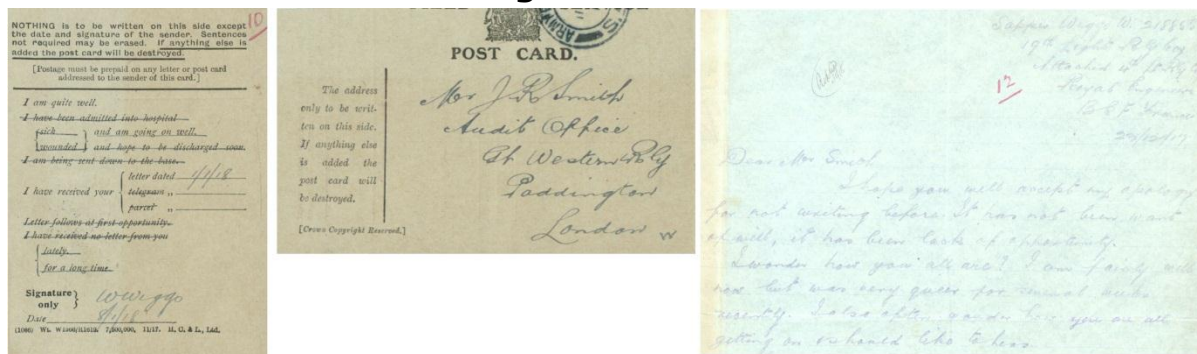 10
NOTHING is to be written on this side except
the date and signature of the sender. Sentences
not required may be erased. If anything else is
added the post card will be destroyed.
[Postage must be prepaid on any letter or post card
addressed to the sender of this card.]
I am quite well.
I have been admitted into hospital
sick } and am going on well.
wounded } and hope to be discharged soon.
I am being sent down to the base.
letter dated 1/1/18
I have received your { telegram „
parcel „
Letter follows at first opportunity.
I have received no letter from you
{ lately.
for a long time.
Signature only } W Wiggs
Date 8/1/18
POST CARD.
The address
only to be writ-
ten on this side.
If anything else
is added the
post card will
be destroyed.
[Crown Copyright Reserved.]
Mr J R Smith
Audit Office
Gt Western Rly
Paddington
London W
Sapper Wiggs W.
19th Light Rly
Attached
Royal Engineers
B E F France
12
Dear Mr Smith
I hope you will accept my apology
for not writing before. It has not been want
of will, it has been lack of opportunity.
I wonder how you all are? I am fairly well
now but was very queer for several
recently. I also often wonder how you are all
getting on & should like to hear